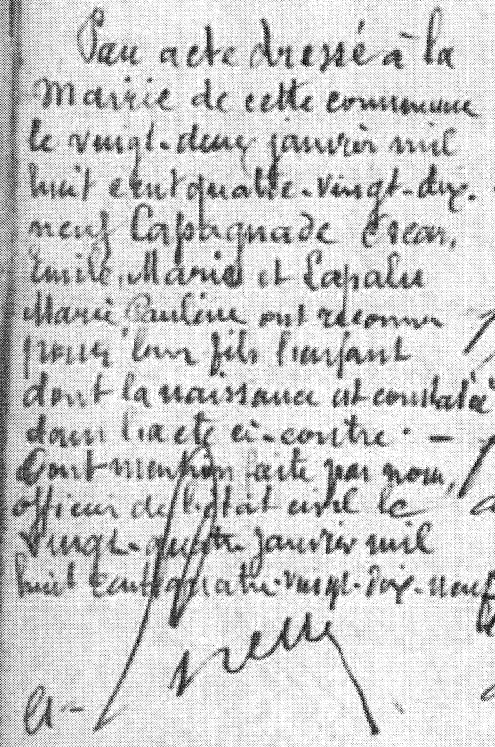 Par acte dressé à la
Mairie de cette commune
le vingt-deux janvier mil
huit cent quatre-vingt-dix-
neuf Lapagnade Oscar,
Emile, Marie et Lapalu
Marie Pauline ont reconnu
pour leur fils l'enfant
dont la naissance est constatée
dans l'acte ci-contre. —
Dont mention faite par nous,
officier de l'état civil le
vingt-quatre janvier mil
huit cent quatre-vingt-dix-neuf